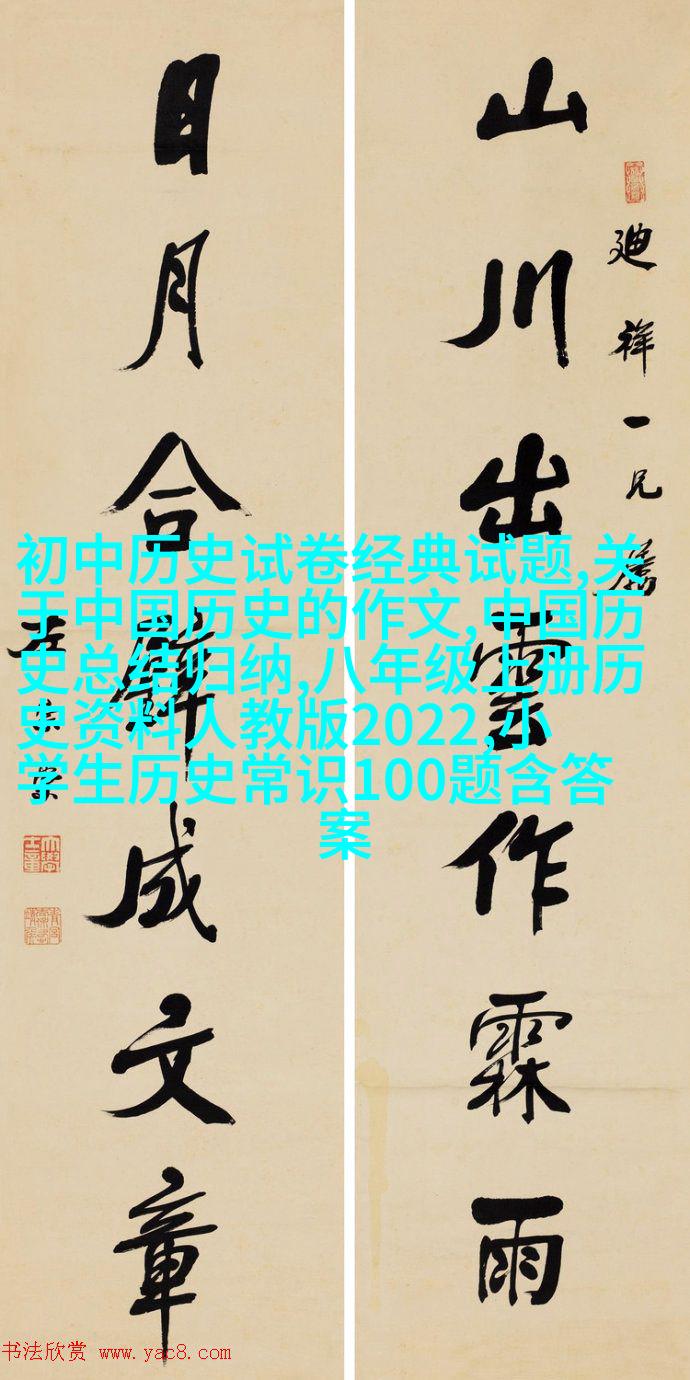 廸祥一兄屬
山川出雲作霖雨
日月合璧成文章
左宗棠
初中历史试卷经典试题,关
于中国历史的作文,中国历
史总结归纳,八年级上册历
史资料人教版2022,小
学生历史常识100题含答
案
书法欣赏 www.yac8.com